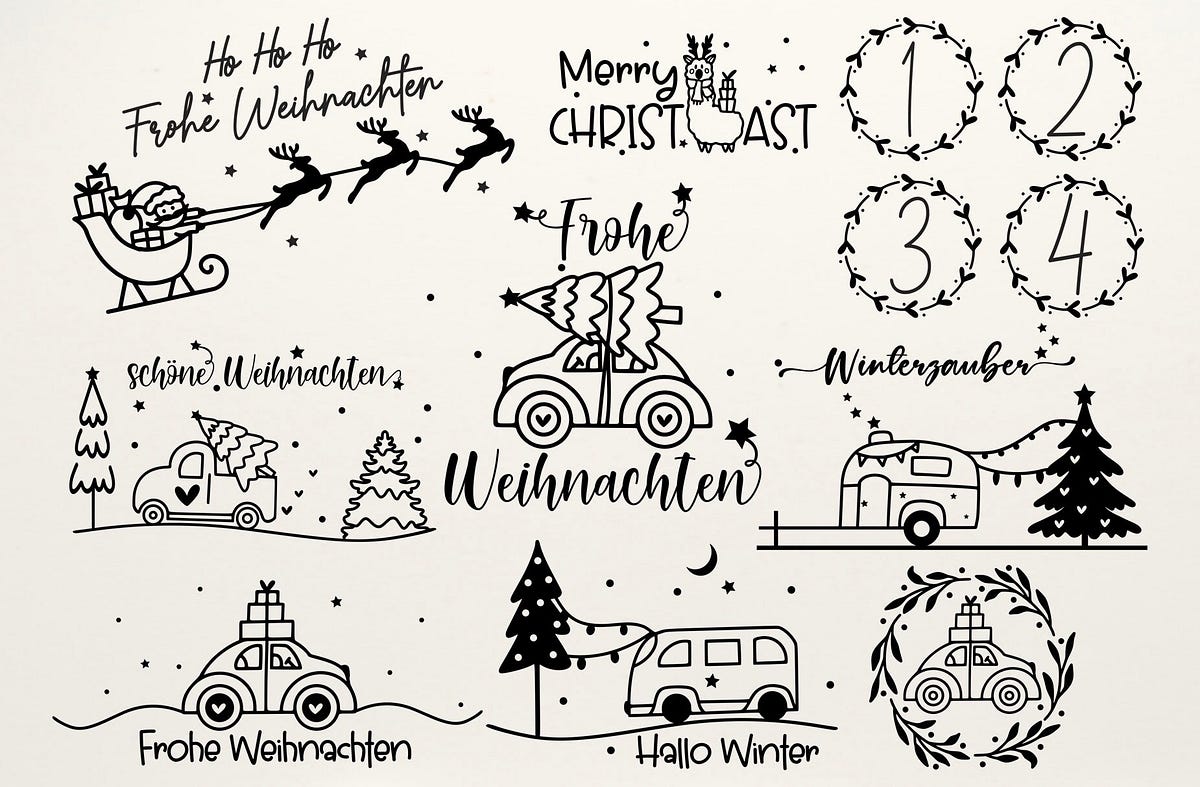 Ho Ho Ho
Frohe Weihnachten
Merry
CHRIST AST
1
2
3
4
Frohe
Weihnachten
schöne Weihnachten
Winterzauber
Frohe Weihnachten
Hallo Winter